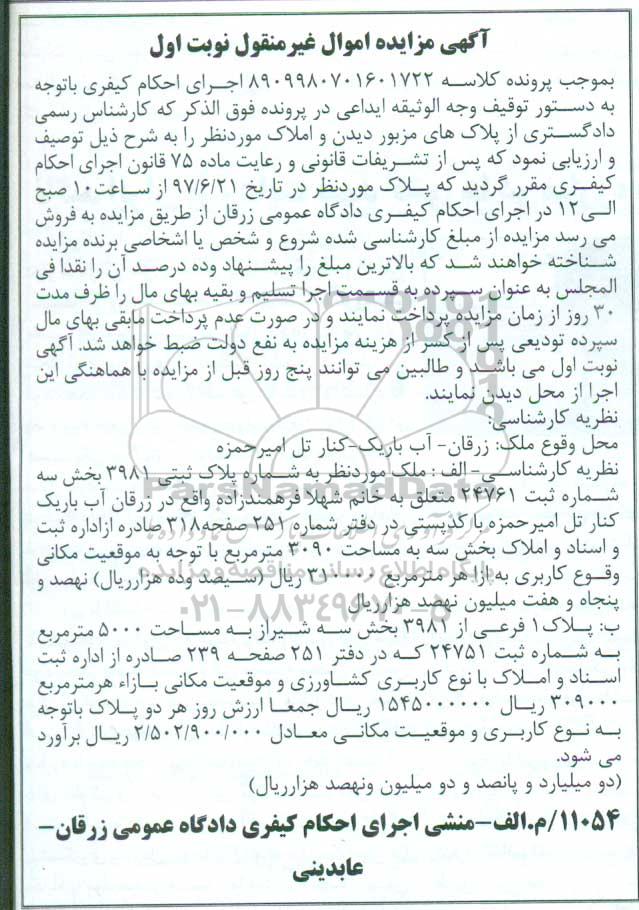 آگهی مزایده اموال غیرمنقول نوبت اول
بموجب پرونده کلاسه ۸۹۰۹۹۸۰۷۰۱۶۰۱۷۲۲ اجرای احکام کیفری باتوجه
به دستور توقیف وجه الوثیقه ایداعی در پرونده فوق الذکر که کارشناس رسمی
دادگستری از پلاک های مزبور دیدن و املاک موردنظر را به شرح ذیل توصیف
و ارزیابی نمود که پس از تشریفات قانونی و رعایت ماده ۷۵ قانون اجرای احکام
کیفری مقرر گردید که پلاک موردنظر در تاریخ ۹۷/۶/۲۱ از ساعت۱۰ صبح
الی۱۲ در اجرای احکام کیفری دادگاه عمومی زرقان از طریق مزایده به فروش
می رسد مزایده از مبلغ کارشناسی شده شروع و شخص یا اشخاصی برنده مزایده
شناخته خواهند شد که بالاترین مبلغ را پیشنهاد وده درصد آن را نقدا فی
المجلس به عنوان سپرده به قسمت اجرا تسلیم و بقیه بهای مال را ظرف مدت
۳۰ روز از زمان مزایده پرداخت نمایند و در صورت عدم پرداخت مابقی بهای مال
سپرده تودیعی پس از کسر از هزینه مزایده به نفع دولت ضبط خواهد شد. آگهی
نوبت اول می باشد و طالبین می توانند پنج روز قبل از مزایده با هماهنگی این
اجرا از محل دیدن نمایند.
نظریه کارشناسی:
محل وقوع ملک: زرقان- آب باریک-کنار تل امیرحمزه
نظریه کارشناسی-الف: ملک موردنظر به شماره پلاک ثبتی ۳۹۸۱ بخش سه
شماره ثبت ۲۴۷۶۱ متعلق به خانم شهلا فرهمندزاده واقع در زرقان آب باریک
کنار تل امیرحمزه با کدپستی در دفتر شماره ۲۵۱ صفحه۳۱۸ صادره ازاداره ثبت
و اسناد و املاک بخش سه به مساحت ۳۰۹۰ مترمربع با توجه به موقعیت مکانی
وقوع کاربری به ازا هر مترمربع ۳۱۰۰۰۰ ریال (سیصد وده هزارریال) نهصد و
پنجاه و هفت میلیون نهصد هزارریال
ب: پلاک۱ فرعی از ۳۹۸۱ بخش سه شیراز به مساحت ۵۰۰۰ مترمربع
به شماره ثبت ۲۴۷۵۱ که در دفتر ۲۵۱ صفحه ۲۳۹ صادره از اداره ثبت
اسناد و املاک با نوع کاربری کشاورزی و موقعیت مکانی بازاء هرمترمربع
۳۰۹۰۰۰ ریال ۱۵۴۵۰۰۰۰۰۰ ریال جمعا ارزش روز هر دو پلاک باتوجه
به نوع کاربری و موقعیت مکانی معادل ۲/۵۰۲/۹۰۰/۰۰۰ ریال برآورد
می شود.
(دو میلیارد و پانصد و دو میلیون ونهصد هزارریال)
۱۱۰۵۴/م.الف-منشی اجرای احکام کیفری دادگاه عمومی زرقان-
عابدینی
ParsNamadData
پایگاه اطلاع رسانی مناقصه و مزایده
۰۲۱-۸۸۳۴۹۶۷۰-۵